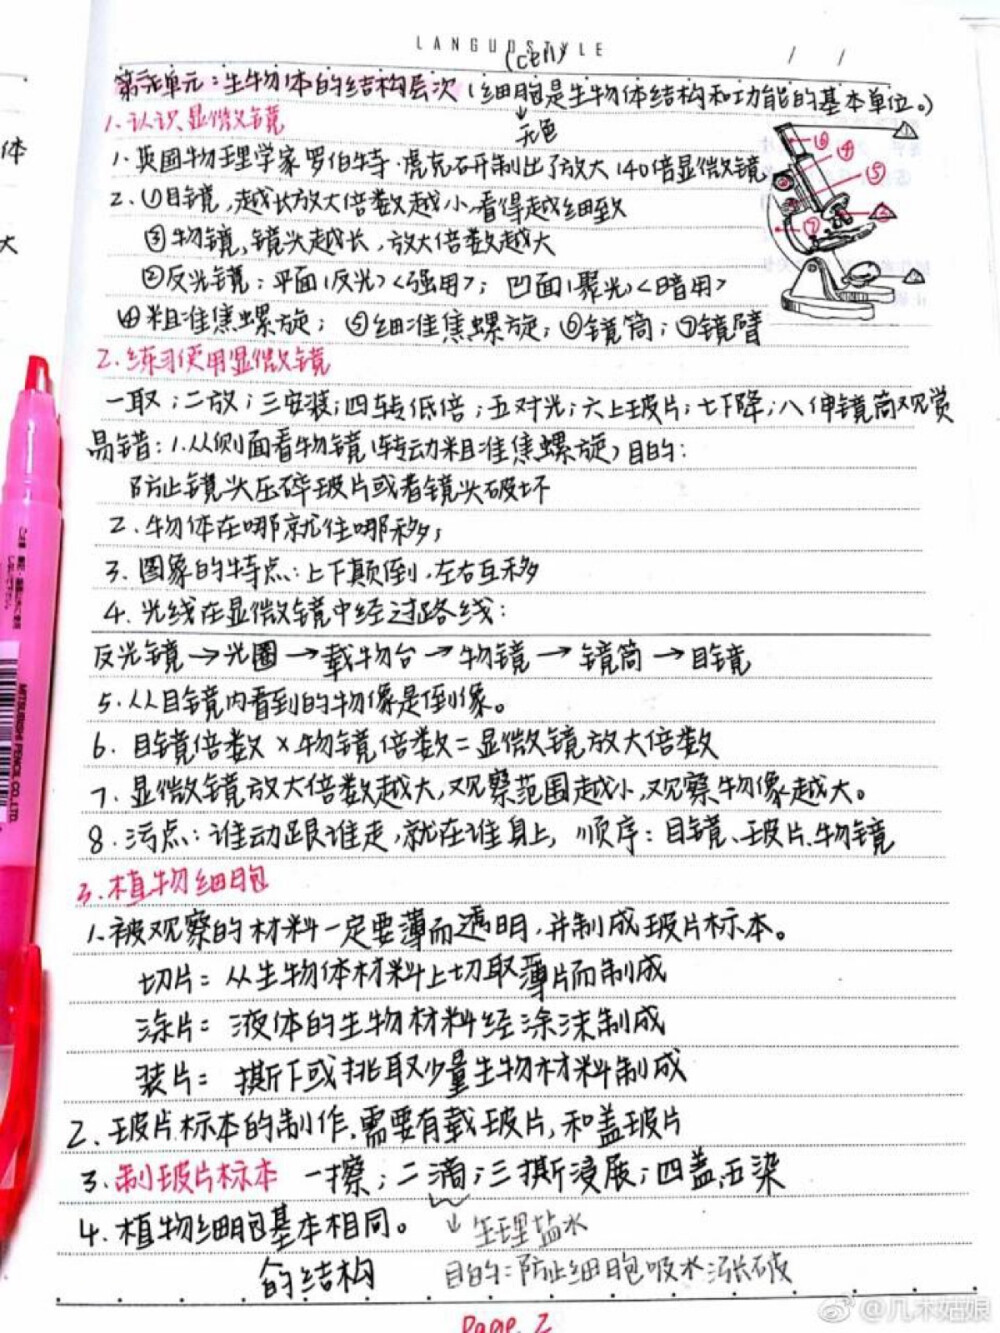 LANGUO STYLE
(cell)
第二单元：生物体的结构层次（细胞是生物体结构和功能的基本单位。）
↓
无色
1.认识显微镜
1.英国物理学家罗伯特·虎克研制出了放大140倍显微镜
2.①目镜，越长放大倍数越小，看得越细致
③物镜，镜头越长，放大倍数越大
②反光镜：平面（反光）<强用>；凹面（聚光）<暗用>
④粗准焦螺旋；⑤细准焦螺旋；⑥镜筒；⑦镜臂
1
⑥
④
⑤
⑦
2.练习使用显微镜
一取；二放；三安装；四转低倍；五对光；六上玻片；七下降；八伸镜筒观赏
易错：1.从侧面看物镜（转动粗准焦螺旋）目的：
防止镜头压碎玻片或者镜头破坏
2.物体在哪就往哪移；
3.图象的特点：上下颠倒，左右互移
4.光线在显微镜中经过路线：
反光镜→光圈→载物台→物镜→镜筒→目镜
5.从目镜内看到的物像是倒像。
6.目镜倍数×物镜倍数=显微镜放大倍数
7.显微镜放大倍数越大，观察范围越小，观察物像越大。
8.污点：谁动跟谁走，就在谁身上，顺序：目镜、玻片、物镜
3.植物细胞
1.被观察的材料一定要薄而透明，并制成玻片标本。
切片=从生物体材料上切取薄片而制成
涂片=液体的生物材料经涂沫制成
装片=撕下或挑取少量生物材料制成
2.玻片标本的制作，需要有载玻片，和盖玻片
3.制玻片标本 一擦；二滴；三撕浸展；四盖，五染
4.植物细胞基本相同。 ↓生理盐水
的结构 目的=防止细胞吸水涨破
Page 2
MITSUBISHI PENCIL CO.,LTD.
体
大
@几木姑娘